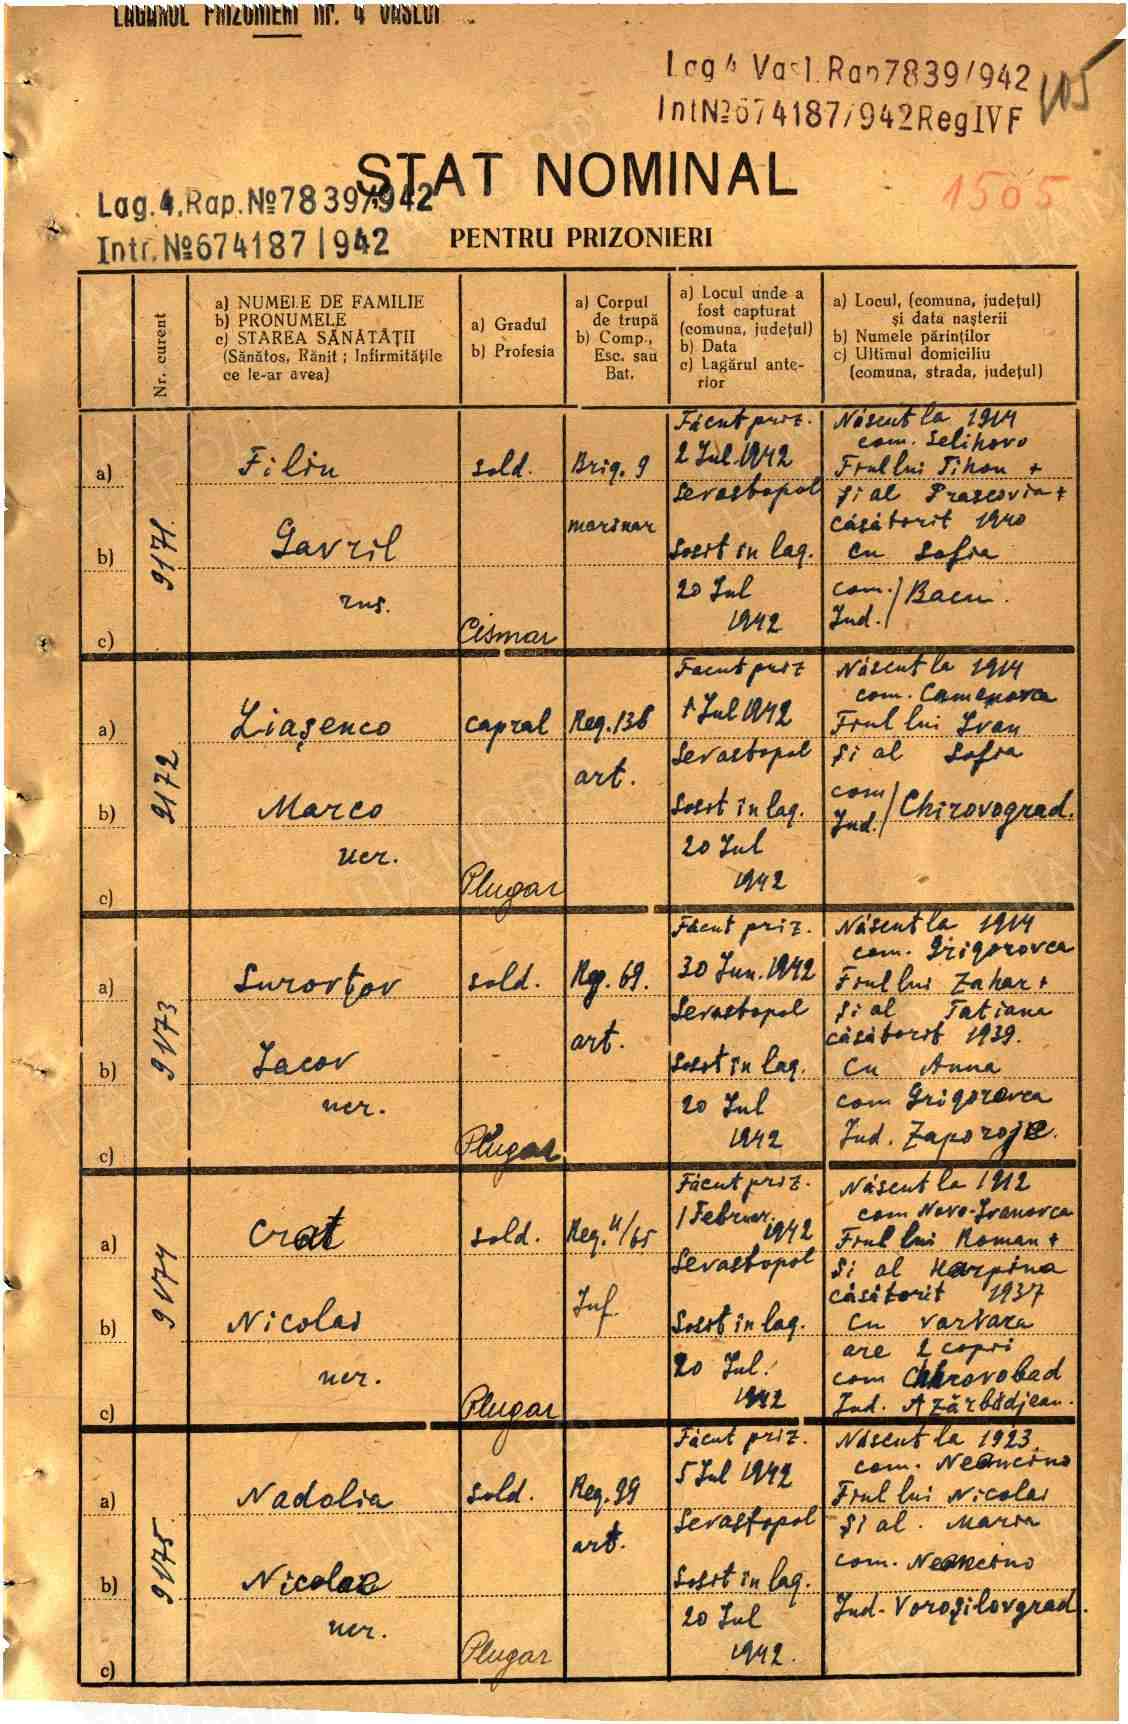 LAGARUL PRIZONIERI Nr. 4 VASLUI
Lag 4 Vasl. Rap 7839/942
Int № 674187/942 Reg IV F
105
STAT NOMINAL
1505
Lag. 4. Rap. № 7839/942
Intr. № 674187 | 942
PENTRU PRIZONIERI
Nr. curent
a) NUMELE DE FAMILIE
b) PRONUMELE
c) STAREA SĂNĂTĂȚII
(Sănătos, Rănit ; Infirmitățile
ce le-ar avea)
a) Gradul
b) Profesia
a) Corpul
de trupă
b) Comp.,
Esc. sau
Bat.
a) Locul unde a
fost capturat
(comuna, județul)
b) Data
c) Lagărul ante-
rior
a) Locul, (comuna, județul)
și data nașterii
b) Numele părinților
c) Ultimul domiciliu
(comuna, strada, județul)
a)
b)
c)
9171.
Filin
Gavril
rus.
sold.
Cismar
Brig. 9
marinar
Făcut priz.
2 Jul. 1942
Sevastopol
Sosit în lag.
20 Jul
1942
Născut la 1914
com. Selihovo
Fiul lui Tihon +
și al Prascovia +
căsătorit 1940
cu Sofia
com. / Bacu.
Jud. /
a)
b)
c)
9172
Liașenco
Marco
ucr.
capral
Plugar
Reg. 136
art.
Facut priz
1 Jul 1942
Sevastopol
Sosit in lag.
20 Jul
1942
Născut la 1914
com. Camenovca
Fiul lui Ivan
și al Sofia
com / Chirovograd.
Jud. /
a)
b)
c)
9173
Surovțov
Iacov
ucr.
sold.
Plugar
Reg. 69.
art.
Făcut priz.
30 Jun. 1942
Sevastopol
Sosit în lag.
20 Jul
1942
Născut la 1914
com. Grigorovca
Fiul lui Zahar +
și al Tatiana
căsătorit 1939.
cu Anna
com Grigorovca
Jud. Zaporoje.
a)
b)
c)
9174
Crat
Nicolai
ucr.
sold.
Plugar
Reg. 4/65
Inf.
Făcut priz.
1 Februar.
1942
Sevastopol
Sosit in lag.
20 Jul.
1942
Născut la 1912
com Novo-Ivanovca
Fiul lui Roman +
și al Harpina
căsătorit 1937
cu Varvara
are 2 copii
com Chirovobad
Jud. Azărbădjean.
a)
b)
c)
9175.
Nadolia
Nicolae
ucr.
sold.
Plugar
Reg. 99
art.
Făcut priz.
5 Jul 1942
Sevastopol
Sosit in lag.
20 Jul
1942.
Născut la 1923.
com. Neancino
Fiul lui Nicolai
și al. Maria
com. Neancino
Jud. Voroșilovgrad.